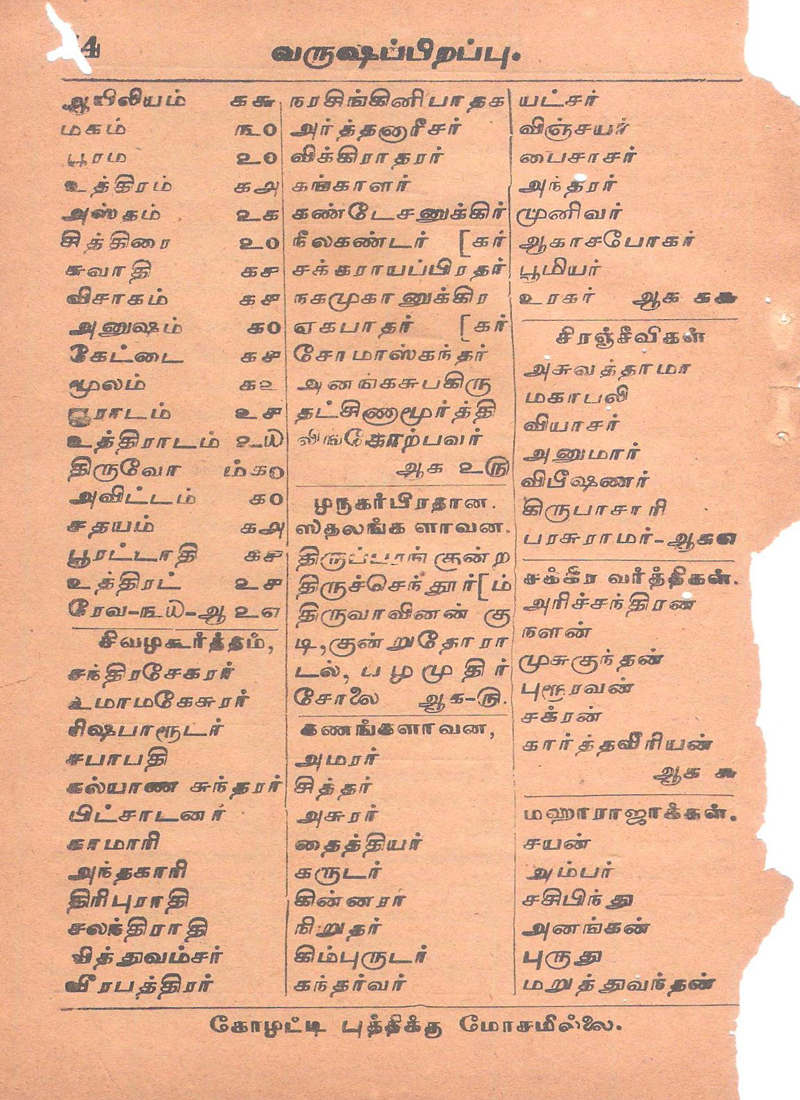 வருஷப்பிறப்பு.
ஆயிலியம் ௧௬
மகம் ௩0
பூரம
உத்திரம் ௧௮
அஸ்தம் ௨௧
சித்திரை ௨0
சுவாதி ௧௪
விசாகம் ௧௪
அனுஷம் ௧0
கேட்டை ௧௪
மூலம் ௧௨
பூராடம் ௨௪
உத்திராடம் ௨௰
திருவோ ம்௧0
அவிட்டம் ௧0
சதயம் ௧௮
பூரட்டாதி ௧௪
உத்திரட் ௨௪
ரேவ-௩௰-ஆ ௨௭
சிவமூகூர்த்தம்,
சந்திரசேகரர்
உமாமகேசுரர்
ரிஷபாரூடர்
சபாபதி
கல்யாண சுந்தரர்
பிட்சாடனர்
காமாரி
அந்தகாரி
திரிபுராதி
சலந்திராதி
வித்துவம்சர்
வீரபத்திரர்
நரசிங்கினிபாதக
அர்த்தனாரீசர்
விக்கிராதரர்
கங்காளர்
கண்டேசனுக்கிர்
நீலகண்டர் [கர்
சக்கராயப்பிரதர்
நகமுகானுக்கிர
ஏகபாதர் [கர்
சோமாஸ்கந்தர்
அனங்கசுபகிரு
தட்சிணாமூர்த்தி
லிங்கோற்பவர்
ஆக ௨௫
முருகர்பிரதான.
ஸ்தலங்க ளாவன.
திருப்பரங்குன்ற
திருச்செந்தூர்[ம்
திருவாவினன் கு
டி,குன்றுதோரா
டல், பழமுதிர்
சோலை ஆக-௫.
கணங்களாவன,
அமரர்
சித்தர்
அசுரர்
தைத்தியர்
கருடர்
கின்னரர்
நிறுதர்
கிம்புருடர்
கந்தர்வர்
யட்சர்
விஞ்சயர்
பைசாசர்
அந்தரர்
முனிவர்
ஆகாசபோகர்
பூமியர்
உரகர் ஆக ௧௬
சிரஞ்சீவிகள்
அசுவத்தாமா
மகாபலி
வியாசர்
அனுமார்
விபீஷணர்
கிருபாசாரி
பரசுராமர்-ஆக௭
சக்கிர வர்த்திகள்.
அரிச்சந்திரன
நளன்
முசுகுந்தன்
புரூரவன்
சக்ரன்
கார்த்தவீரியன்
ஆக ௬
மஹாராஜாக்கள்.
சயன்
அம்பர்
சசிபிந்து
அனங்கன்
புருது
மறுத்துவந்தன்
கோழட்டி புத்திக்கு மோசமில்லை.